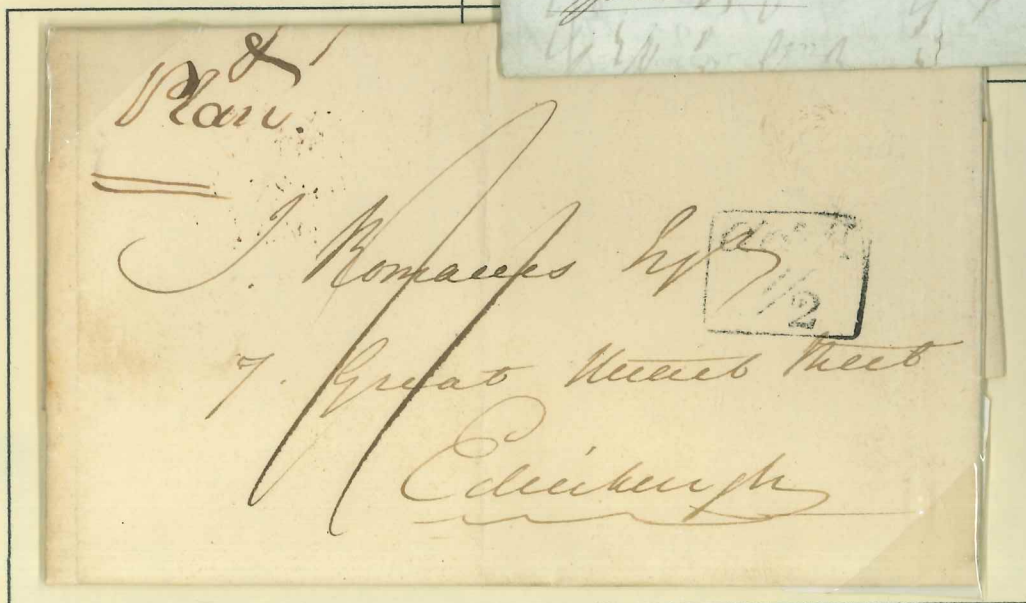 &
Plan.
J. Romanes Esqr
7. Great Street
Edinburgh
1/2